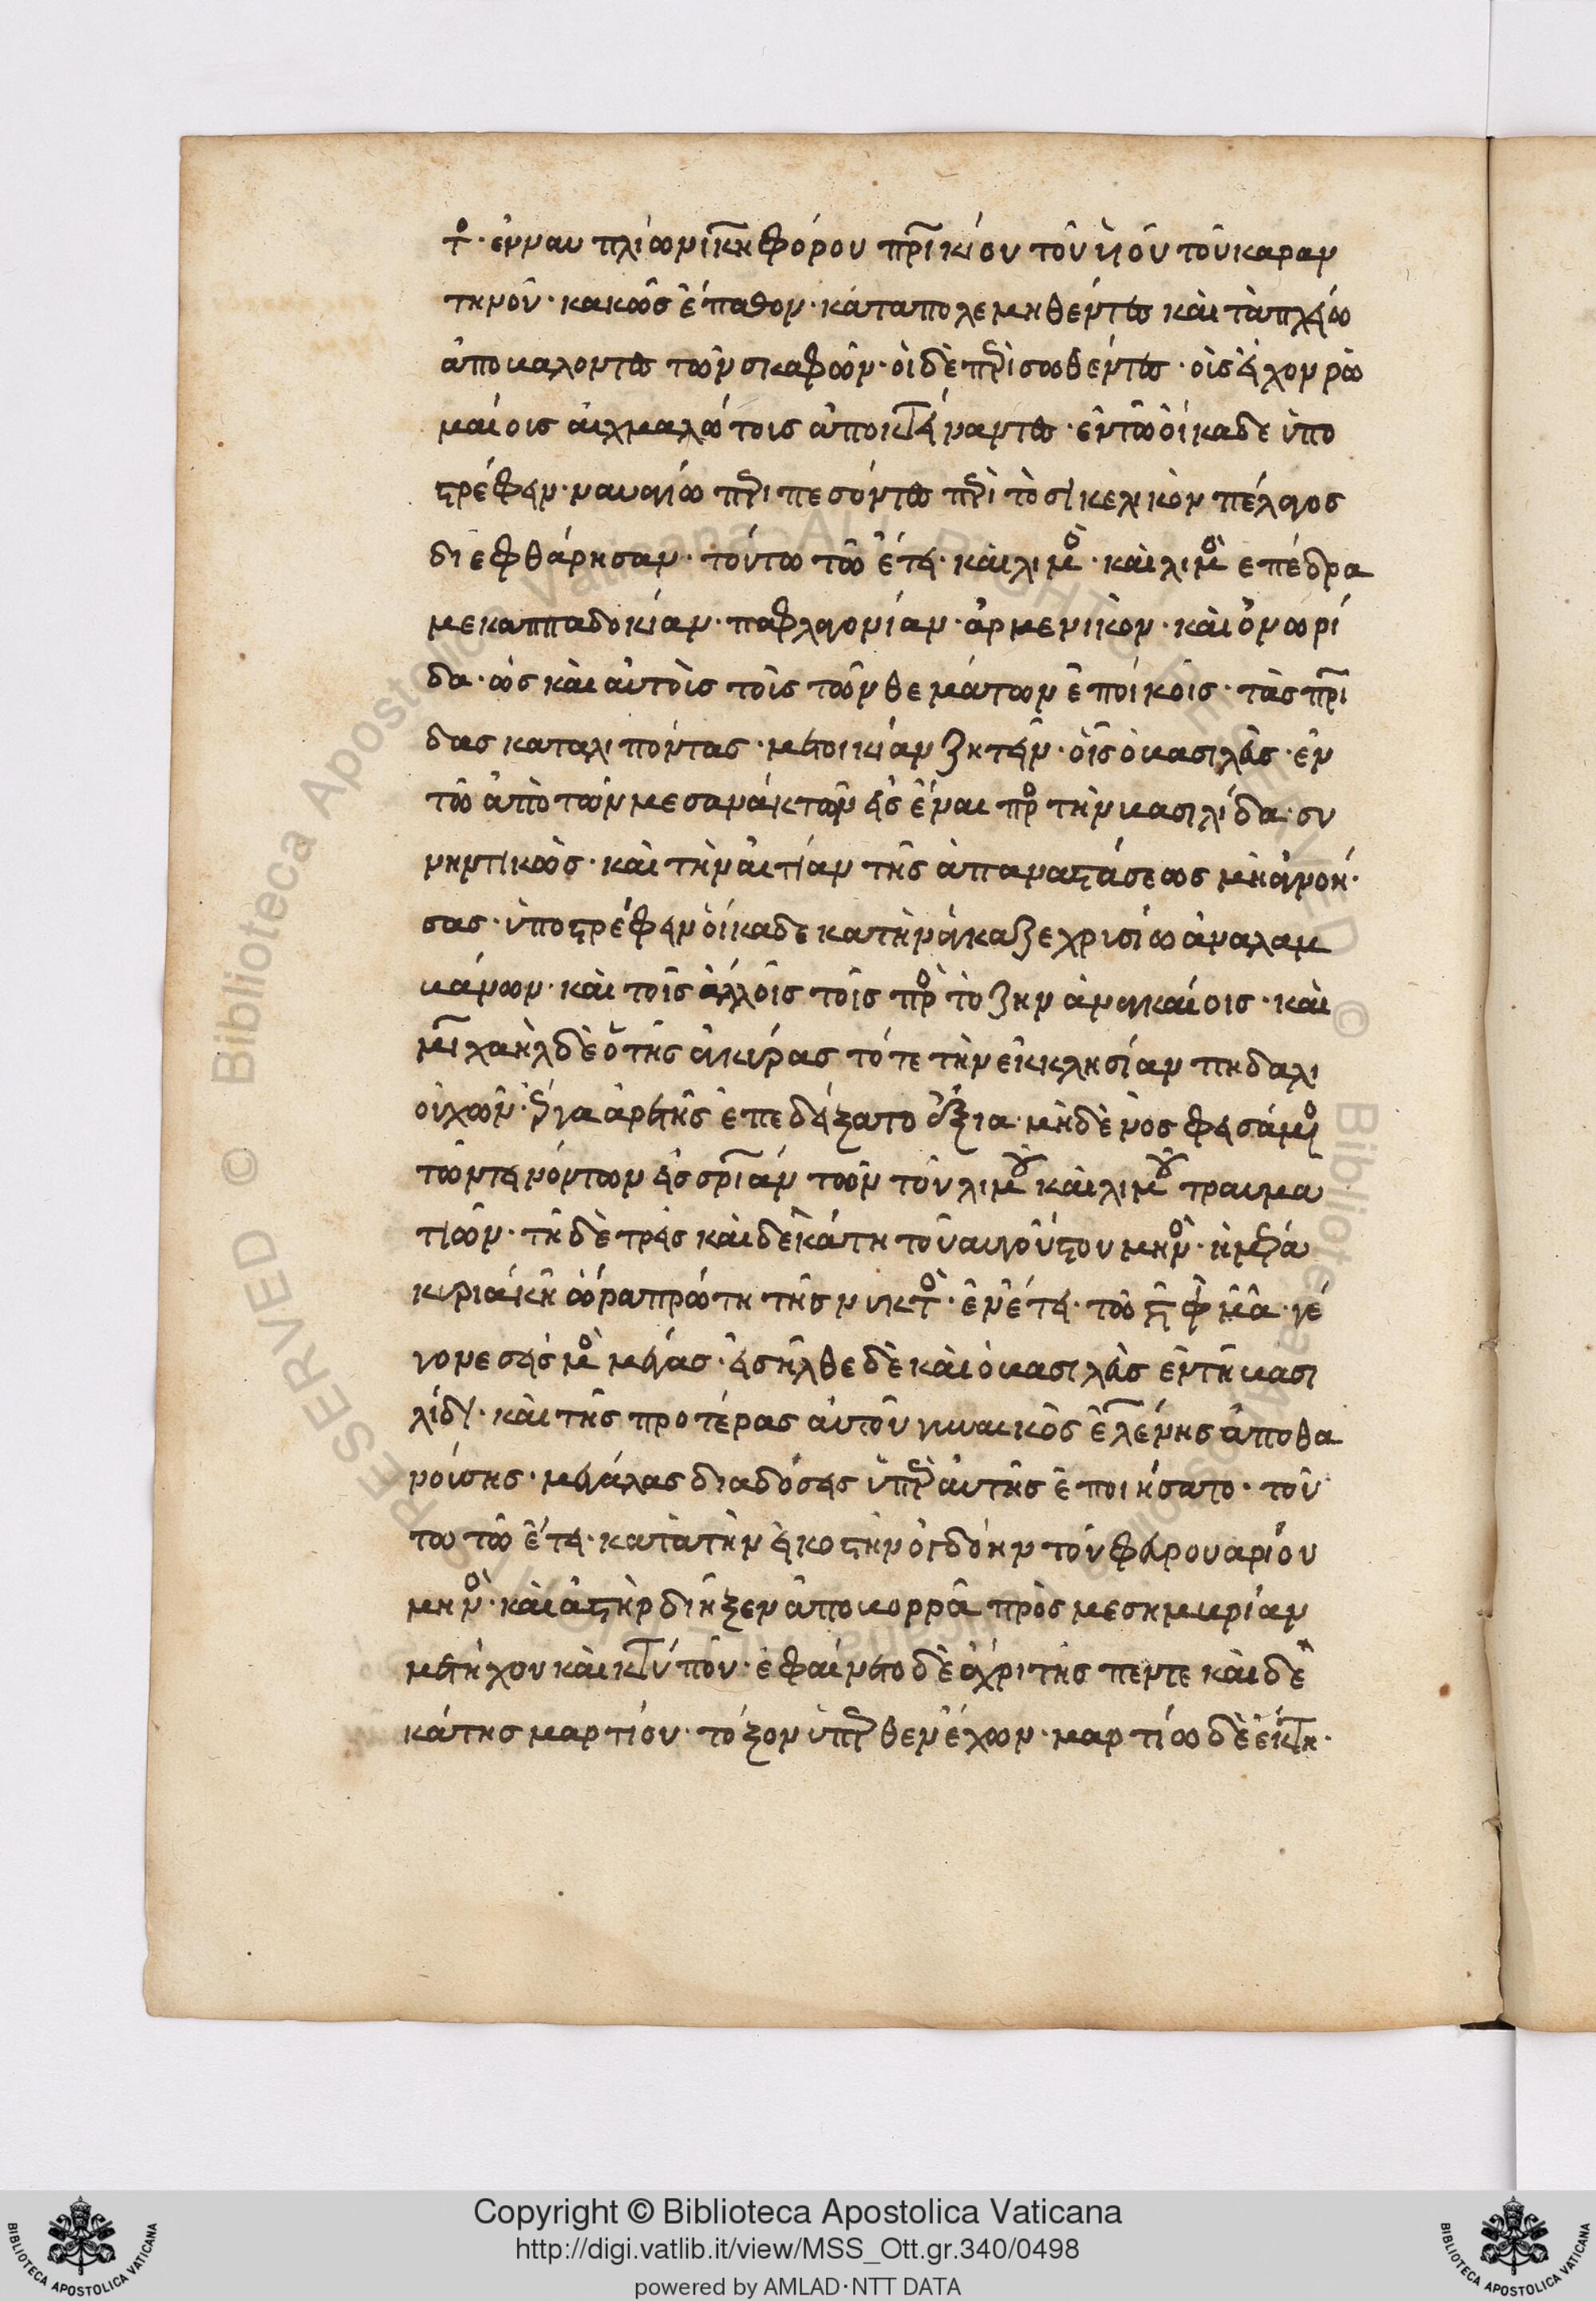 τ̊· ἐνναυπλίω νικηφόρου πρικίου τοῦ ὑιοῦ τοῦ καραν
τηνοῦ· κακῶς ἔπαθον· καταπολεμηθέντες καὶ τὰ πλείω
ἀποβαλοντες τῶν σκαφῶν· ὁι δὲ περισωθέντες· οἷς εἶχον ρω
μαίοις αἰχμαλώτοις ἀποκτείναντες· ἐν τῶ οἴκαδε ὑπο
στρέφειν· ναυαγίω περιπεσόντες περὶ τὸ σικελικὸν πέλαγος
διεφθάρησαν· τούτω τῶ ἔτει· καὶ λιμὸ· καὶ λιμὸ ἐπέδρα
με καππαδοκίαν· παφλαγονίαν· ἀρμενικὸν· καὶ ὀνωρί
δα· ὡς καὶ αὐτοῖς τοῖς τῶν θεμάτων ἐποίκοις· τὰς πρι
δας καταλιπόντας· μετοικίαν ζητεῖν· οἷς ὁ βασιλεὺς· ἐν
τῶ ἀπὸ τῶν μεσανάκτων εἰσιέναι πρὸ τὴν βασιλίδα· συ
νηντικὼς· καὶ τὴν αἰτίαν τῆς ἀπαναστάσεως μὴ ἀγνοή·
σας· ὑποστρέφειν οἴκαδε κατηνάγκαζε χρυσίω ἀναλαμ
βάνων· καὶ τοῖς ἄλλοις τοῖς πρὸ τὸ ζην ἀναγκαίοις· καὶ
μιχαὴλ δὲ ὁ τῆς ἀγκύρας τότε τὴν ἐκκλησίαν πηδαλι
ουχῶν· ἔργα ἀρετῆς ἐπεδείξατο ἄξια· μηδὲνος φεισάμενο
τῶν τεινόντων εἰς σριαν τῶν τοῦ λιμοῦ καὶ λιμοῦ τραυμα
τιῶν· τῆ δὲ τρεῖς καὶ δεκάτη τοῦ αὐγούστου μηνὸ· ἡμέρα
κυριακῆ ὥρα πρώτη τῆς νυκτὸ· ἐν ἔτει· τῶ ϛ φ μ α· γέ
γονε σεισμὸ μέγας· εἰσῆλθε δὲ καὶ ὁ βασιλεὺς ἐν τῆ βασι
λίδι· καὶ τῆς προτέρας αὐτοῦ γυναικὸς ἑλένης ἀποθα
νούσης· μεγάλας διαδόσεις ὑπὲρ αὐτῆς ἐποιήσατο· τού
τω τῶ ἔτει· κατὰ τὴν εἰκοστὴν ὀγδόην τοῦ φεβρουαρίου
μηνὸ· καὶ ἀστὴρ διῆξεν ἀπὸ βορρᾶ πρὸς μεσημβρίαν
μετ' ἤχου καὶ κτύπου· ἐφαίνετο δὲ ἄχρι τῆς πεντε καὶ δε
κάτης μαρτίου· τόξον ὑπερθεν ἔχων· μαρτίω δὲ ἕκτη·
Copyright © Biblioteca Apostolica Vaticana
http://digi.vatlib.it/view/MSS_Ott.gr.340/0498
powered by AMLAD·NTT DATA